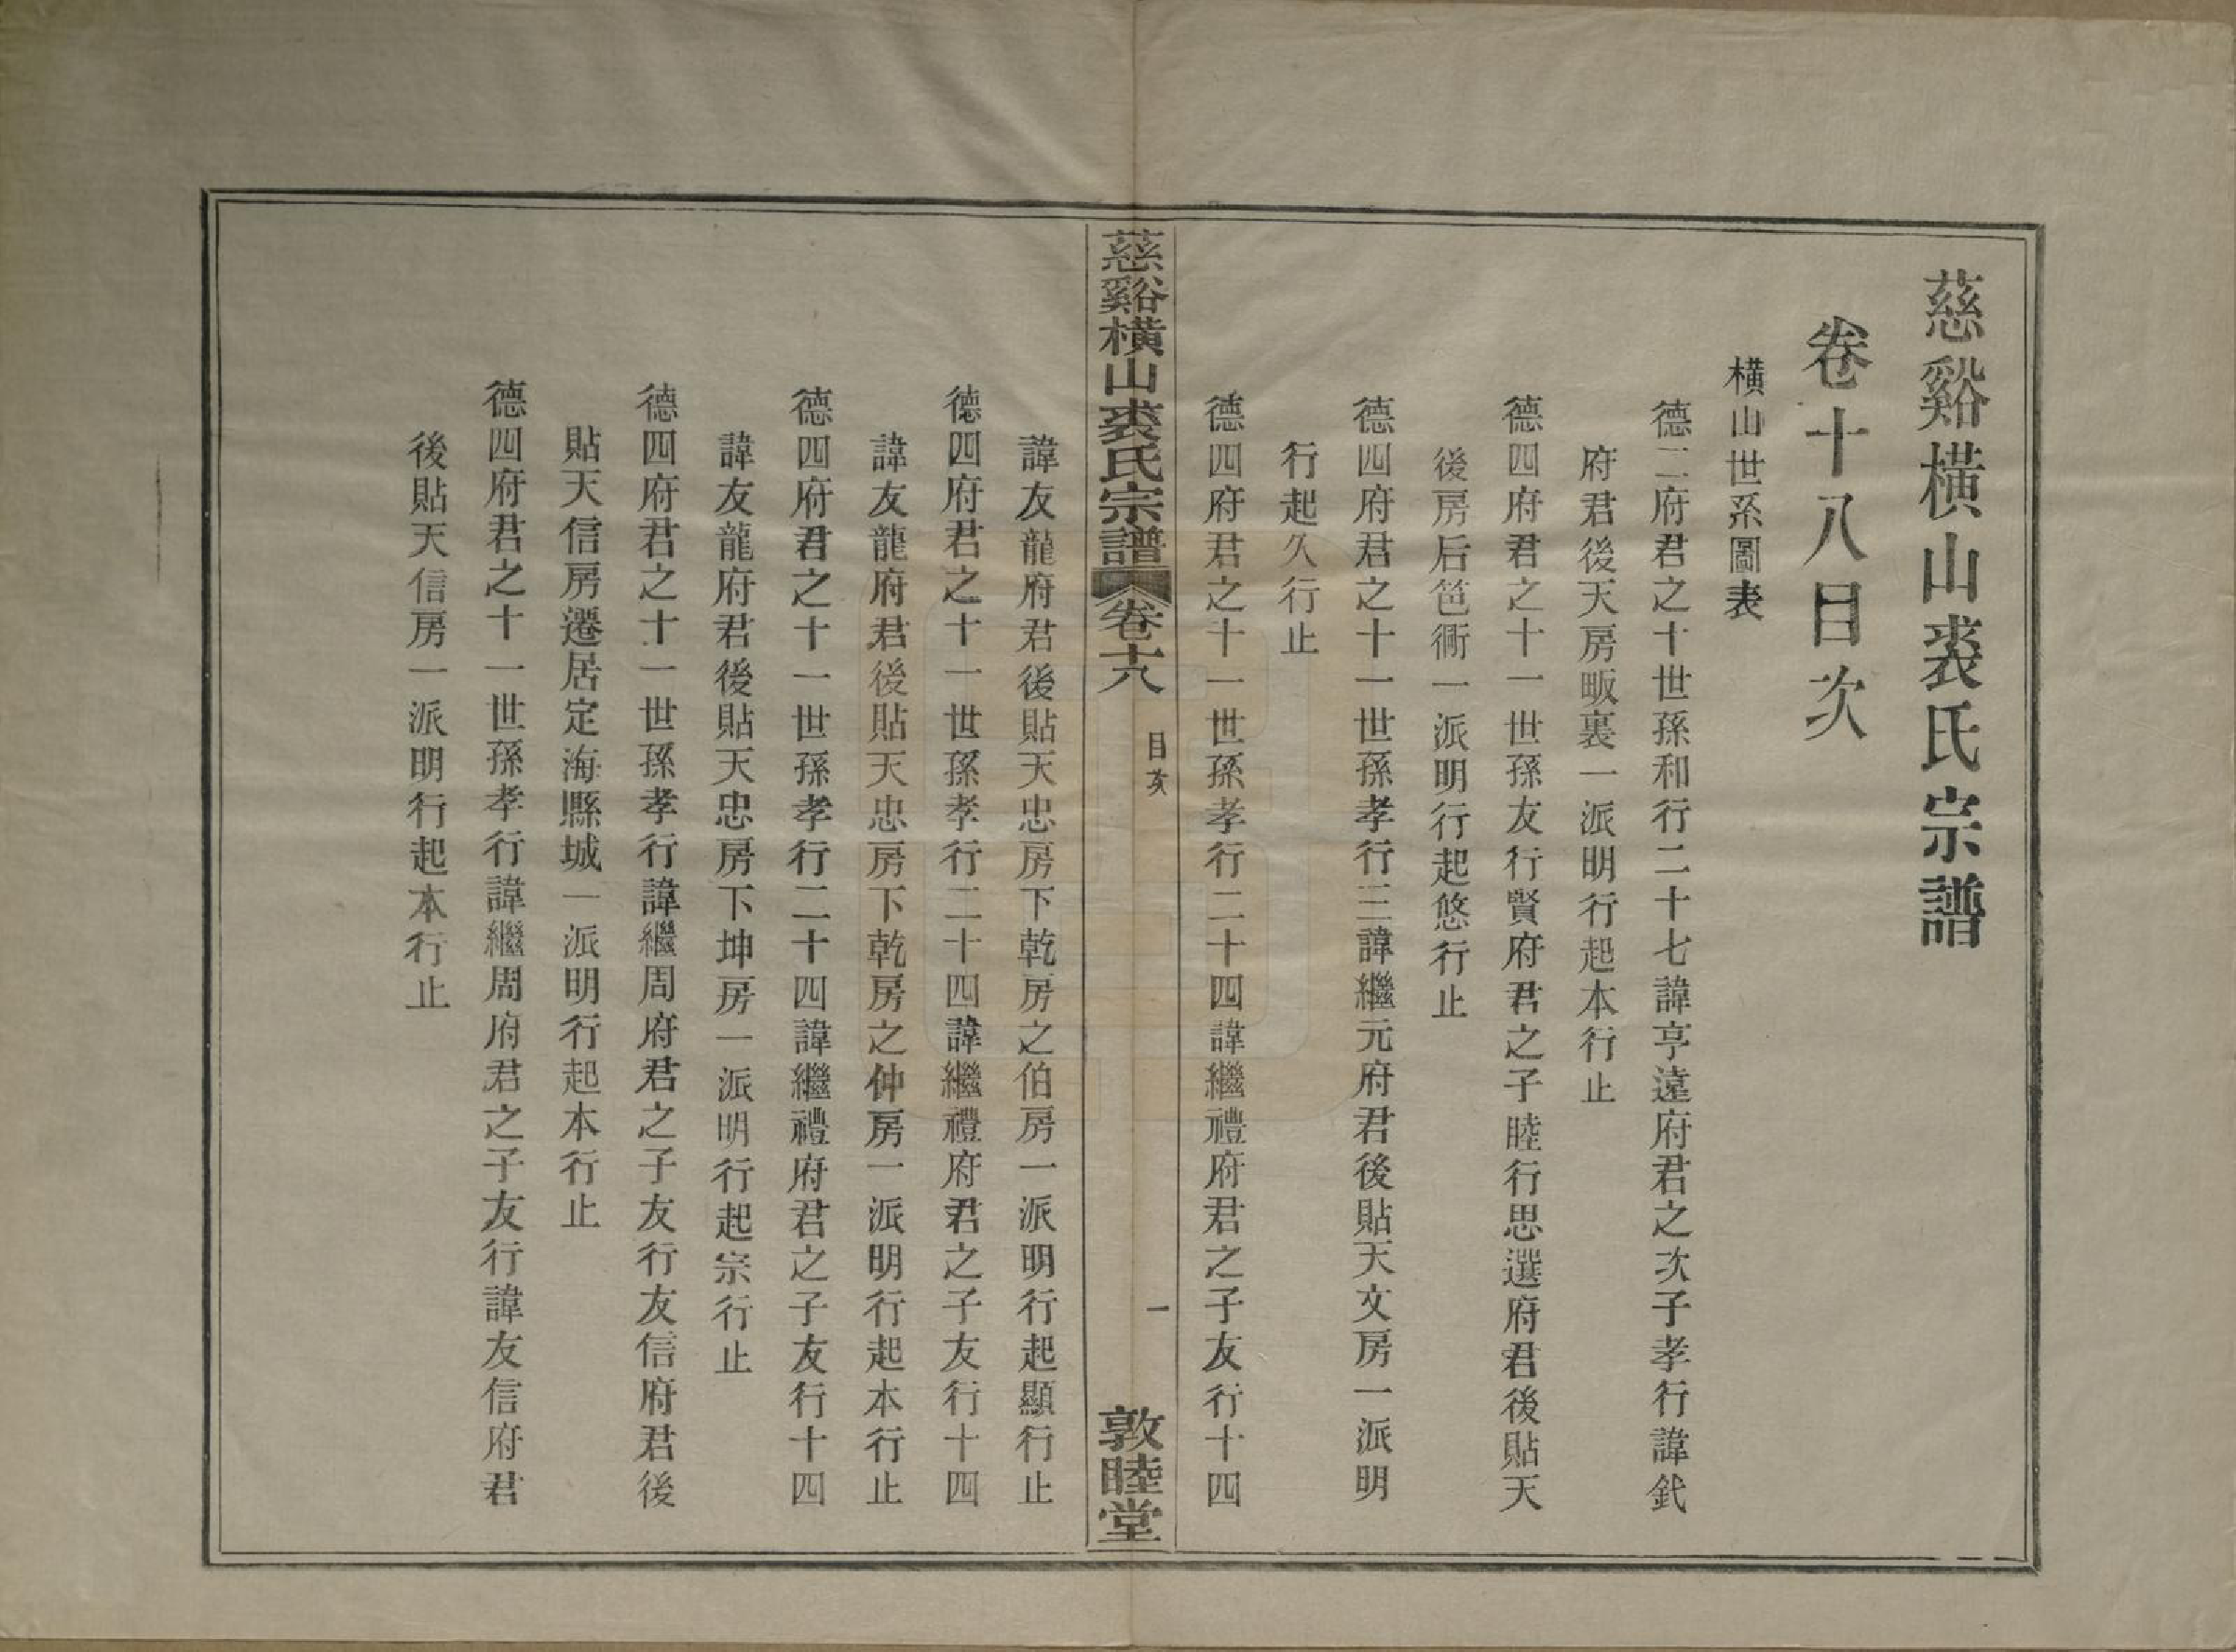 慈谿橫山裘氏宗譜
卷十八目次
橫山世系圖表
德二府君之十世孫和行二十七諱亨遠府君之次子孝行諱鈛
府君後天房畈裏一派明行起本行止
德四府君之十一世孫友行賢府君之子睦行思選府君後貼天
後房后笆衕一派明行起悠行止
德四府君之十一世孫孝行三諱繼元府君後貼天文房一派明
行起久行止
德四府君之十一世孫孝行二十四諱繼禮府君之子友行十四
慈谿橫山裘氏宗譜 卷十八 目次 一 敦睦堂
諱友龍府君後貼天忠房下乾房之伯房一派明行起顯行止
德四府君之十一世孫孝行二十四諱繼禮府君之子友行十四
諱友龍府君後貼天忠房下乾房之仲房一派明行起本行止
德四府君之十一世孫孝行二十四諱繼禮府君之子友行十四
諱友龍府君後貼天忠房下坤房一派明行起宗行止
德四府君之十一世孫孝行諱繼周府君之子友行友信府君後
貼天信房遷居定海縣城一派明行起本行止
德四府君之十一世孫孝行諱繼周府君之子友行諱友信府君
後貼天信房一派明行起本行止